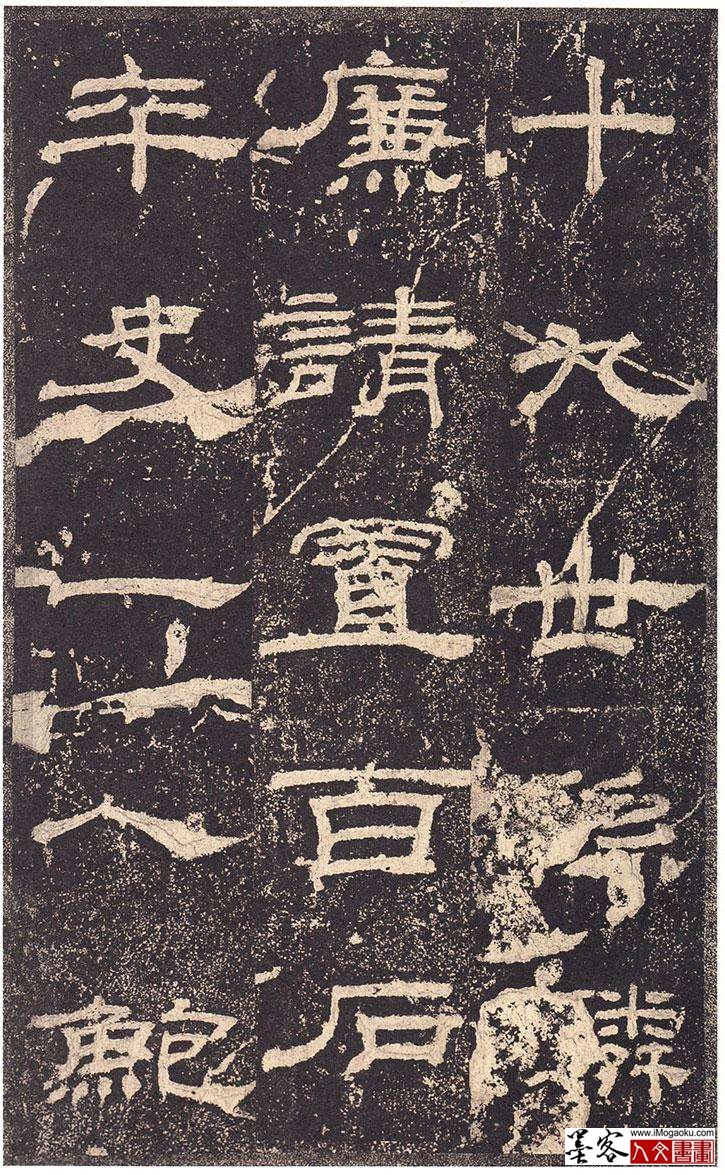 十九世孫麟
廉請置百石
卒史一人鮑
墨客
www.iMogaoku.com
人文書畫